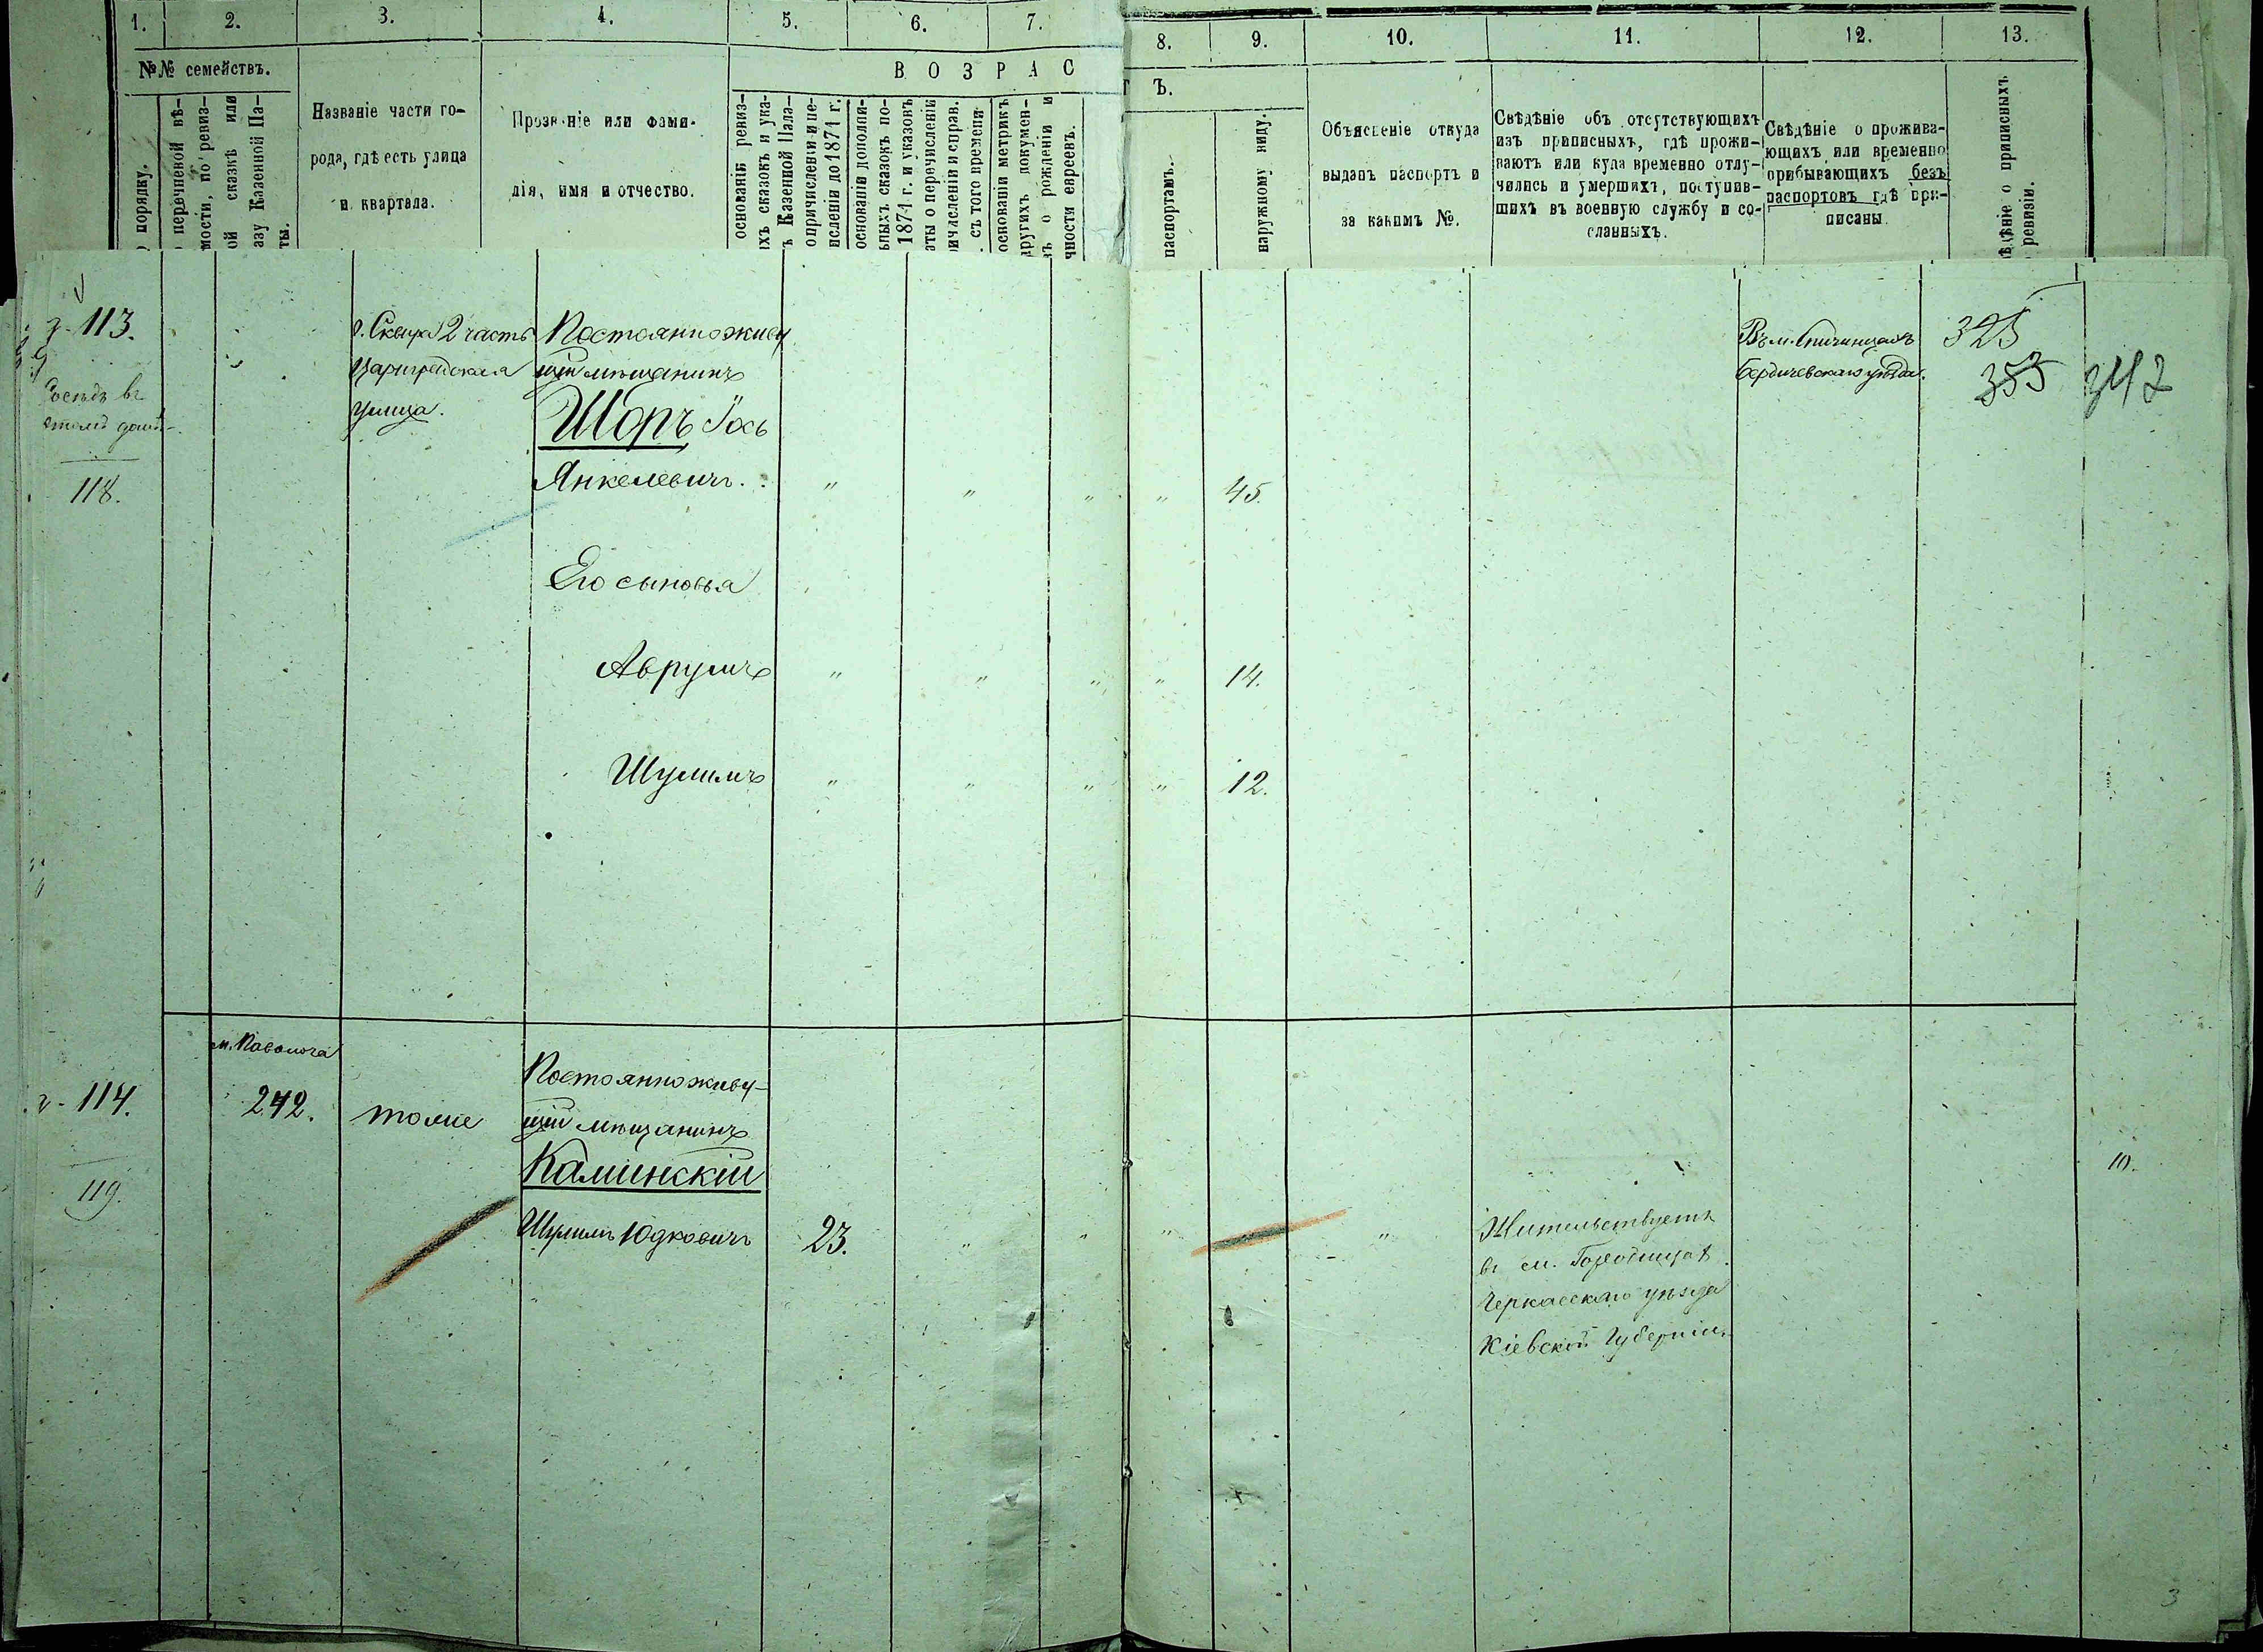 1.
2.
3.
4.
5.
6.
7.
8.
9.
10.
11.
12.
13.
№№ семействъ.
порядку.
перечневой вѣ-
мости, по ревиз-
ой сказкѣ или
азу Казенной Па-
ты.
Названіе части го-
рода, гдѣ есть улица
и квартала.
Прозваніе или фами-
лія, имя и отчество.
ВОЗРАС
Т Ъ.
основаніи ревиз-
ихъ сказокъ и ука-
ъ Казенной Пала-
опричисленіи и пе-
ислении до 1871 г.
основаніи дополни-
ьныхъ сказокъ по-
1871 г. и указовъ
аты о перечисленіи
ичисленіи и справ.
съ того времени
основаніи метрикъ
другихъ докумен-
въ о рожденіи и
чности евреевъ.
паспортамъ.
наружному виду.
Объясненіе откуда
выданъ паспортъ и
за какимъ №.
Свѣдѣніе объ отсутствующихъ
изъ приписныхъ, гдѣ прожи-
ваютъ или куда временно отлу-
чились и умершихъ, поступив-
шихъ въ военную службу и со-
сланныхъ.
Свѣдѣніе о прожива-
ющихъ или временно
прибывающихъ безъ
паспортовъ гдѣ при-
писаны.
ѣдѣніе о приписныхъ
ревизіи.
113.
г. Сквира 2 часть
Цариградская
улица.
въ
этомъ домѣ
118.
Постоянно живу
щій мѣщанинъ
Шоръ Іось
Янкелевичъ. " " " " 45.
Въ м. Спичинцахъ
Бердичевскаго уѣзда.
325
353
342
Его сыновья
Аврумъ " " " " 14.
Шулимъ " " " " 12.
м. Паволочь
114.
242.
тоже
Постоянно живу-
щій мѣщанинъ
Каминскій
119.
Шулимъ Юдковичъ 23. " " " "
Жительствуетъ
въ м. Городищѣ
Черкасскаго уѣзда
Кіевской Губерніи
10.
3